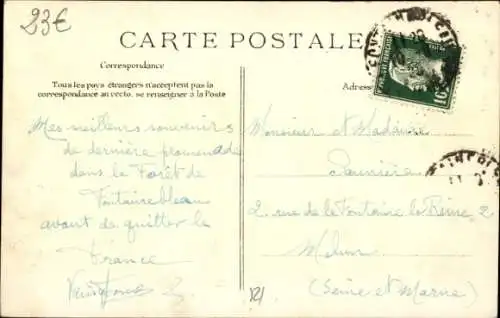 23€
CARTE POSTALE
Correspondance
Tous les pays étrangers n'acceptent pas la
correspondance au verso, se renseigner à la Poste
Adres
10
Mes meilleurs souvenirs
de dernière promenade
dans la Forêt de
Fontainebleau
avant de quitter la
France
Monsieur et Madame
2. rue de la Fontaine la Reine 2
Melun
(Seine et Marne)